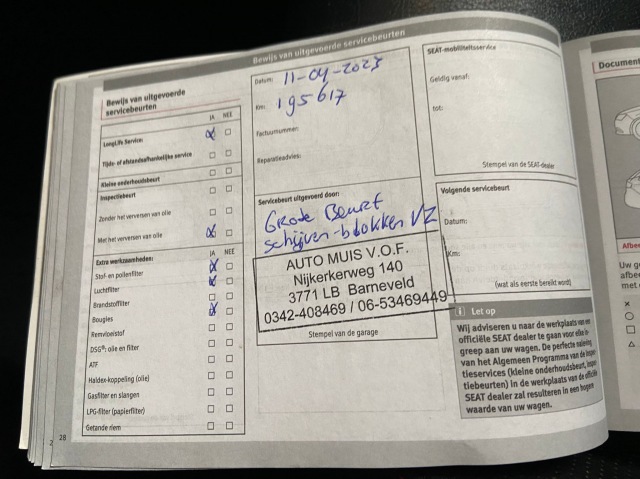 Bewijs van uitgevoerde servicebeurten
Bewijs van uitgevoerde
servicebeurten
JA NEE
LongLife Service:
Tijds- of afstandsafhankelijke service
Kleine onderhoudsbeurt
Inspectiebeurt
Zonder het verversen van olie
Met het verversen van olie
Extra werkzaamheden: JA NEE
Stof- en pollenfilter
Luchtfilter
Brandstoffilter
Bougies
Remvloeistof
DSG®: olie en filter
ATF
Haldex-koppeling (olie)
Gasfilter en slangen
LPG-filter (papierfilter)
Getande riem
28
Datum: 11-04-2023
Km: 195617
Factuurnummer:
Reparatieadvies:
Servicebeurt uitgevoerd door:
Grote Beurt
schijven-blokken VZ
AUTO MUIS V.O.F.
Nijkerkerweg 140
3771 LB Barneveld
0342-408469 / 06-53469449
Stempel van de garage
SEAT-mobiliteitsservice
Geldig vanaf:
tot:
Stempel van de SEAT-dealer
Volgende servicebeurt
Datum:
Km:
(wat als eerste bereikt word)
i Let op
Wij adviseren u naar de werkplaats van een
officiële SEAT dealer te gaan voor elke in-
greep aan uw wagen. De perfecte naleving
van het Algemeen Programma van de Inspec-
tieservices (kleine onderhoudsbeurt, inspec-
tiebeurten) in de werkplaats van de officiële
SEAT dealer zal resulteren in een hogere
waarde van uw wagen.
Document
Afbee
Uw g
afbee
met